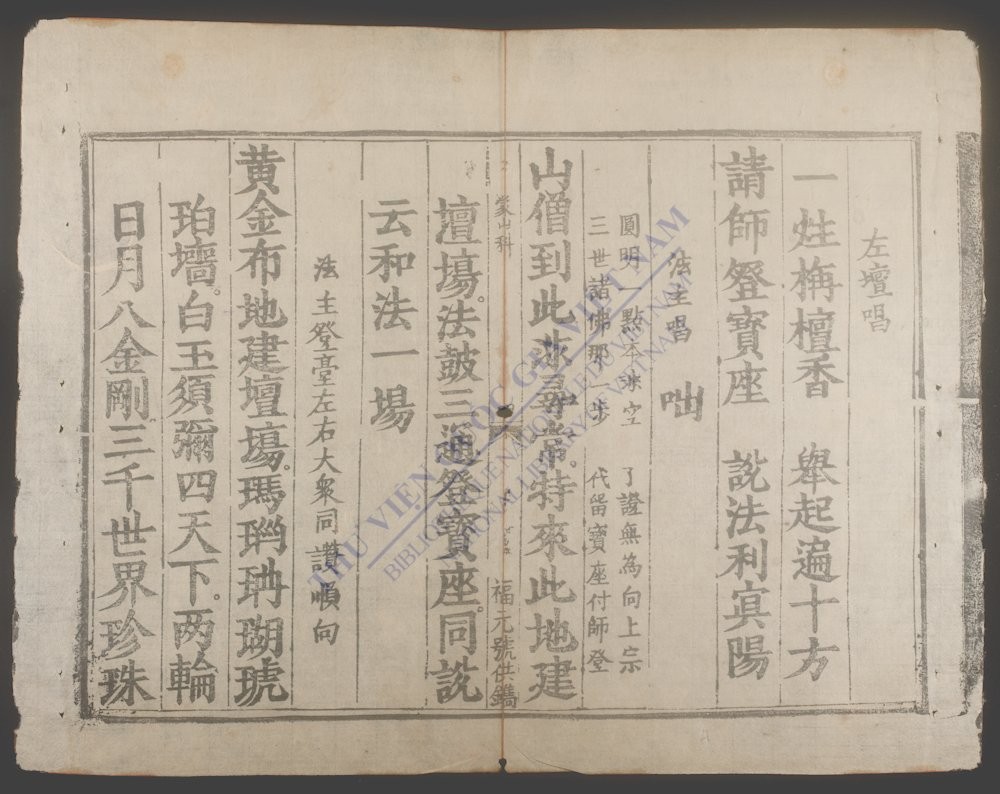 左壇唱
一炷栴檀香　舉起遍十方
請師登寳座　説法利㝠陽
法主唱　咄
圓明一點本淋空　了證無為向上宗
三世諸佛那一步　代畱寳座付師登
山僧到此亦尋常。特來此地建
蒙山科　福元號供鐫
壇塲。法鼓三通登寳座。同説
云和法一場
法主登臺左右大衆同讃順向
黄金布地建壇塲。瑪瑙珊瑚琥
珀墻。白玉須彌四天下。两輪
日月八金剛三千世界珍珠
THƯ VIỆN QUỐC GIA VIỆT NAM
BIBLIOTHÈQUE NATIONALE DU VIETNAM
NATIONAL LIBRARY OF VIETNAM